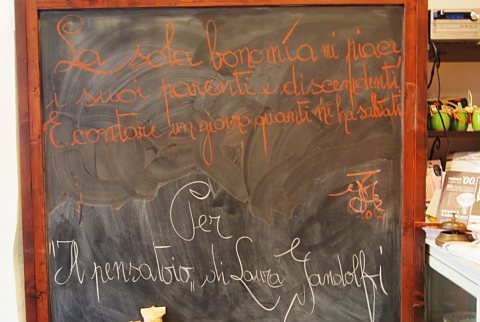 La sola bonomía mi piace
i suoi parenti e discendenti
E contare un giorno quanti mi ha saltati
Per
"Il pensatoio" di Laura Gandolfi